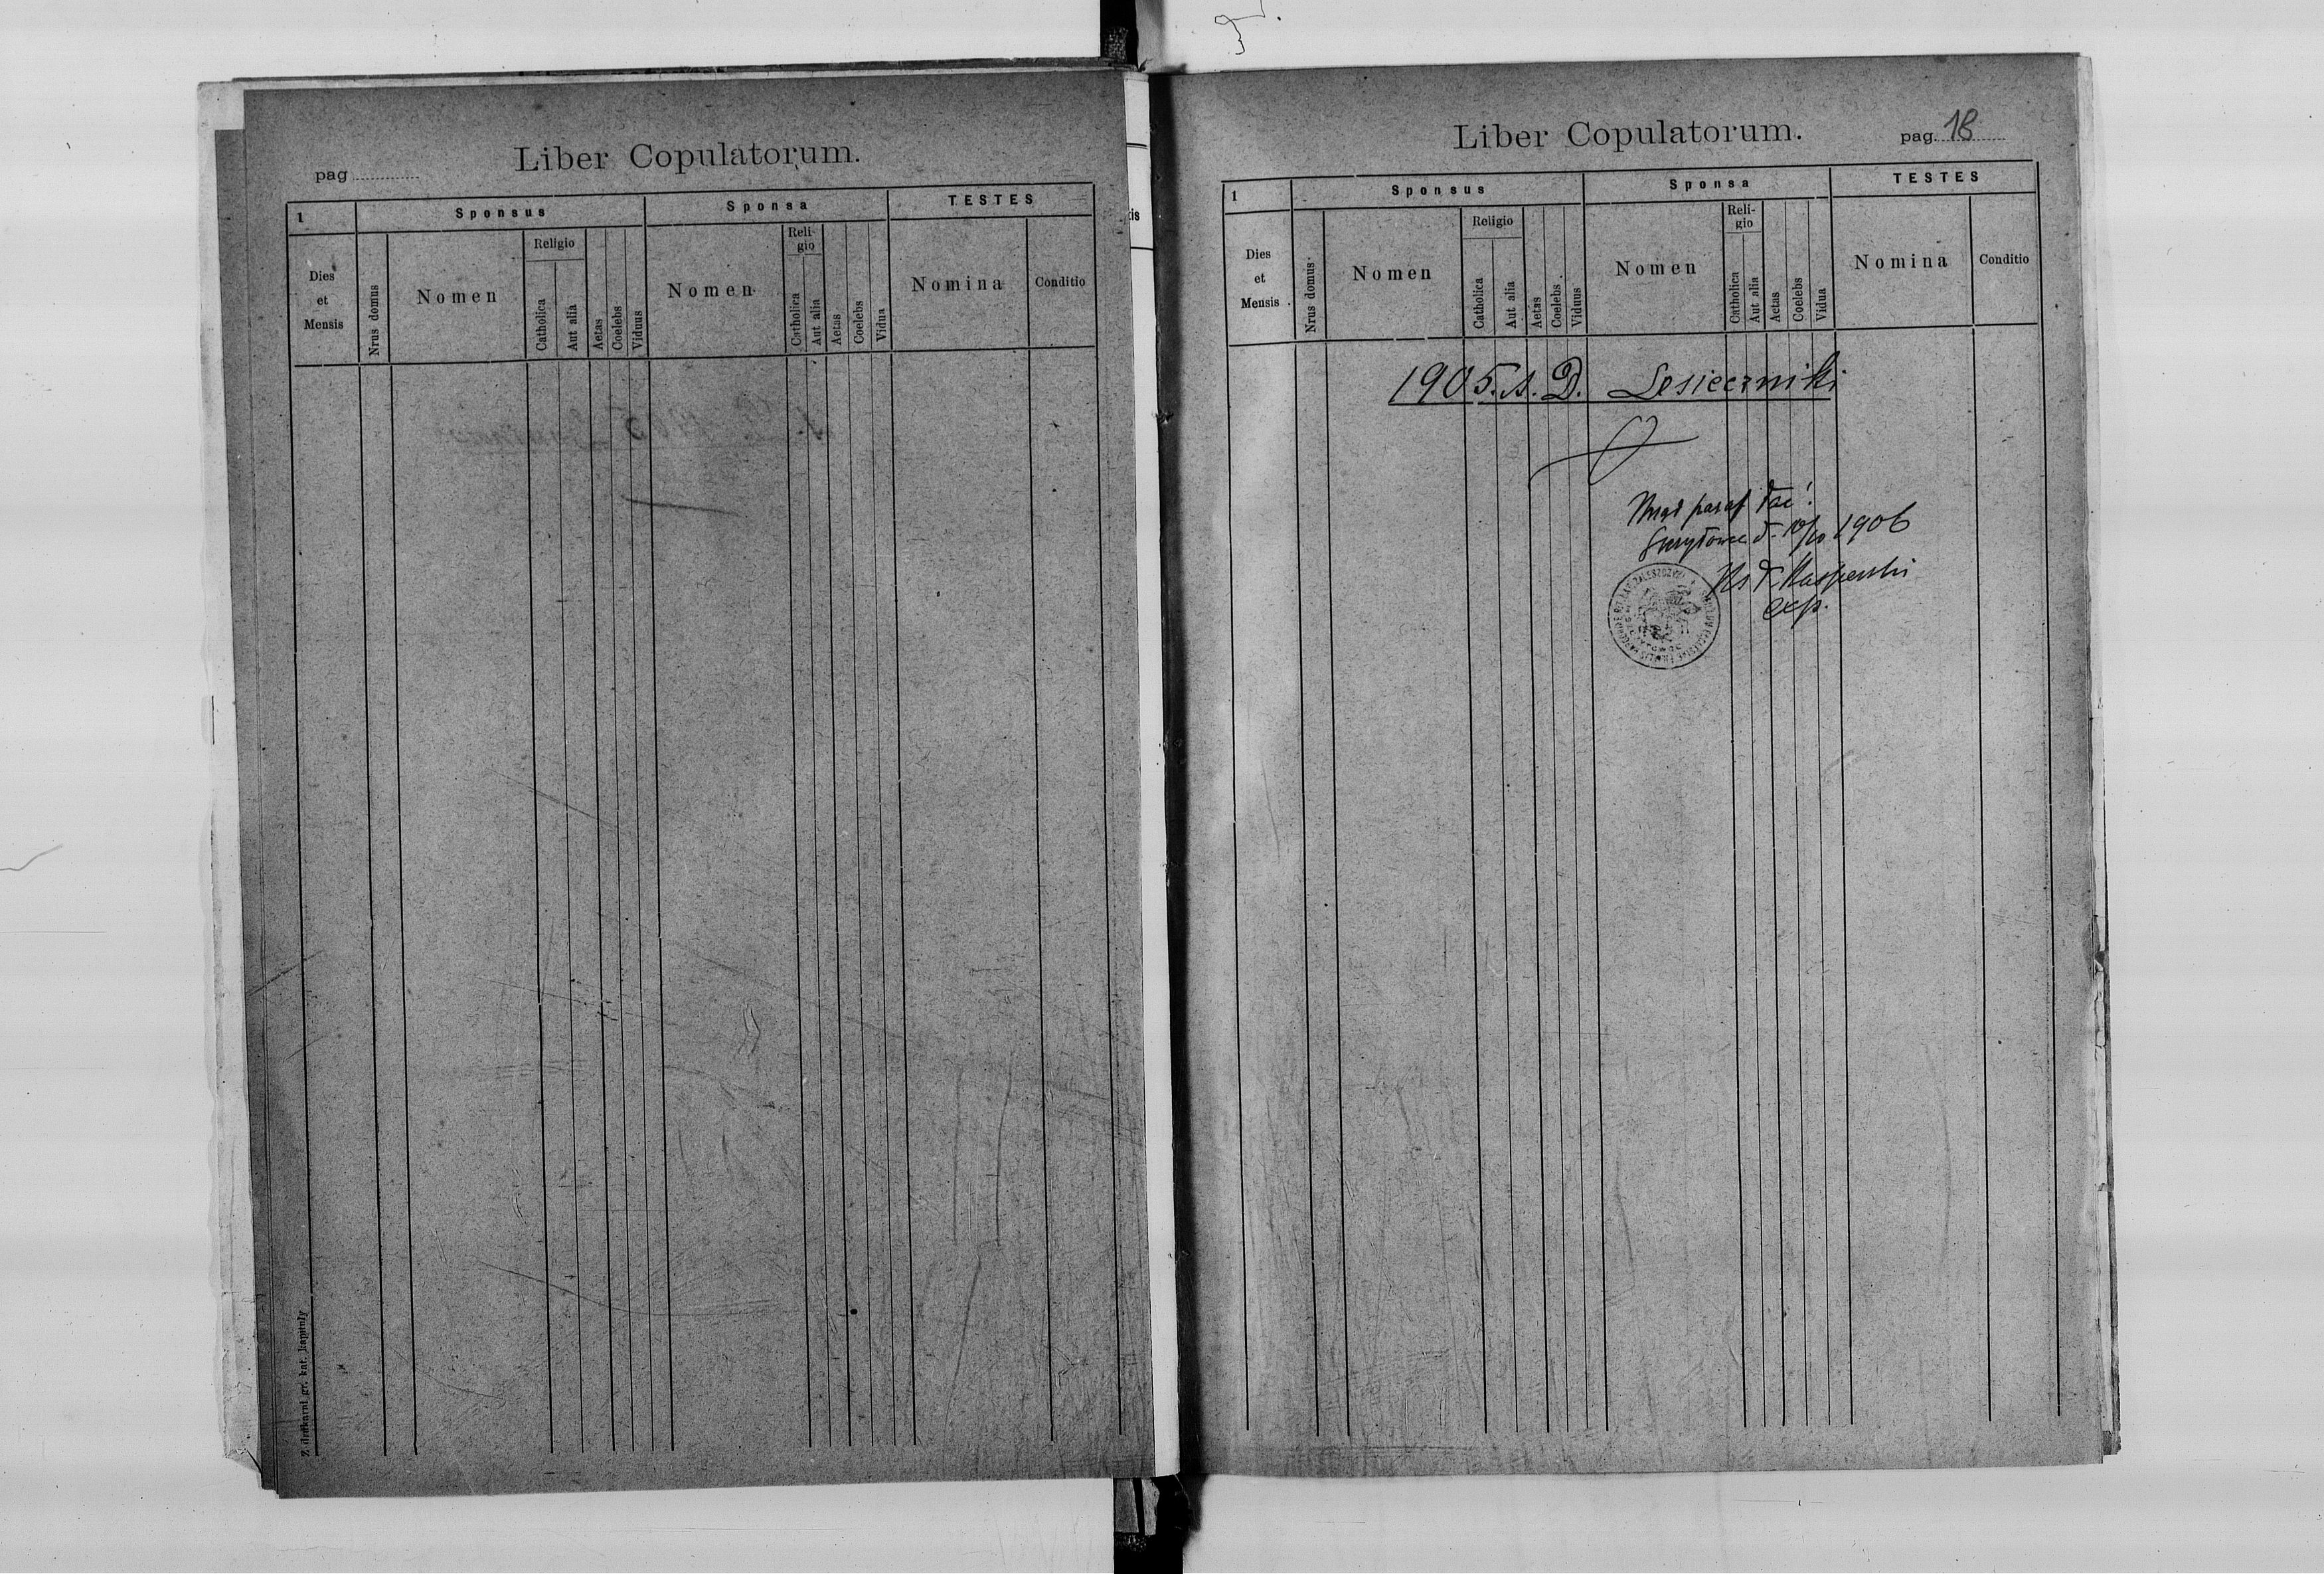 pag
Liber Copulatorum.
1
Sponsus
Sponsa
TESTES
Dies
et
Mensis
Nrus domus
Nomen
Religio
Catholica
Aut alia
Aetas
Coelebs
Viduus
Nomen
Reli-
gio
Catholica
Aut alia
Aetas
Coelebs
Vidua
Nomina
Conditio
Z drukarni gr. kat. kapituły
Liber Copulatorum.
pag. 18
1
Sponsus
Sponsa
TESTES
Dies
et
Mensis
Nrus domus
Nomen
Religio
Catholica
Aut alia
Aetas
Coelebs
Viduus
Nomen
Reli-
gio
Catholica
Aut alia
Aetas
Coelebs
Vidua
Nomina
Conditio
1905. A. D. Lesieczniki
1906
Ks Kasperski
exp.